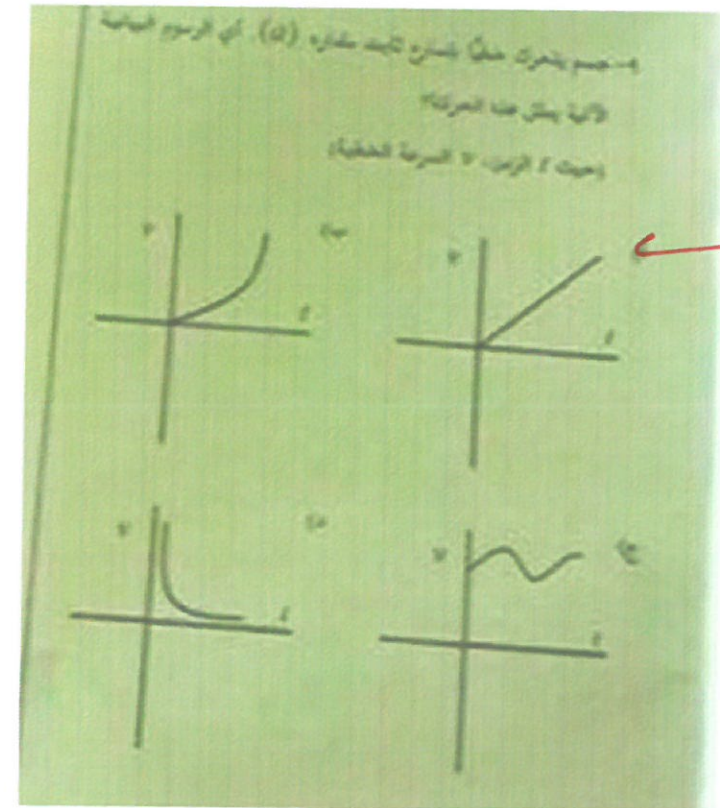 ٩- جسم يتحرك خطيًا بتسارع ثابت مقداره (a). أي الرسوم البيانية
الآتية يمثل هذه الحركة؟
(حيث t الزمن، v السرعة الخطية)
v t
ب) v t
ج) v t
د) v t